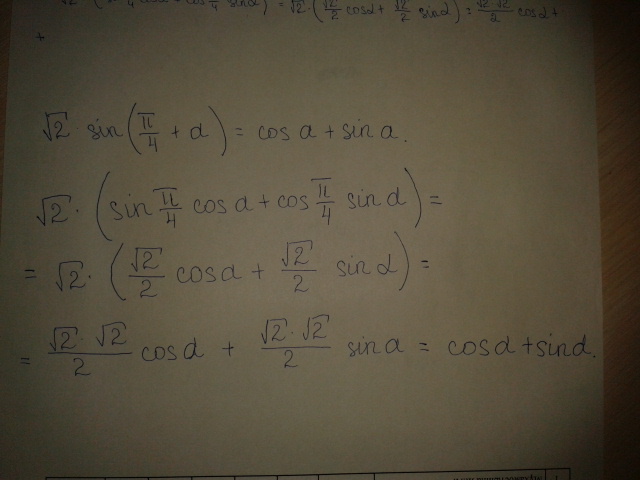 cosα + cos π/4 sinα) = √2 · (√2/2 cosα + √2/2 sinα) = √2·√2/2 cosα +
+
√2 · sin(π/4 + α) = cos α + sin α.
√2 · (sin π/4 cos α + cos π/4 sin α) =
= √2 · (√2/2 cos α + √2/2 sin α) =
= √2 · √2/2 cos α + √2 · √2/2 sin α = cos α + sin α.